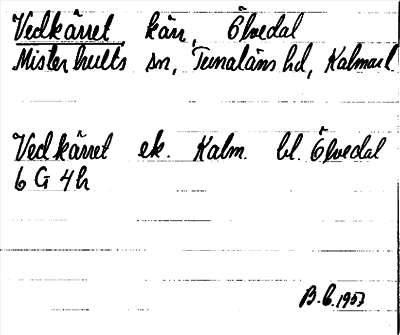 Vedkärret, kärr, Ölvedal
Misterhults sn, Tunaläns hd, Kalmar l.
Vedkärret ek. Kalm. bl. Ölvedal
6 G 4h
B.C. 1953